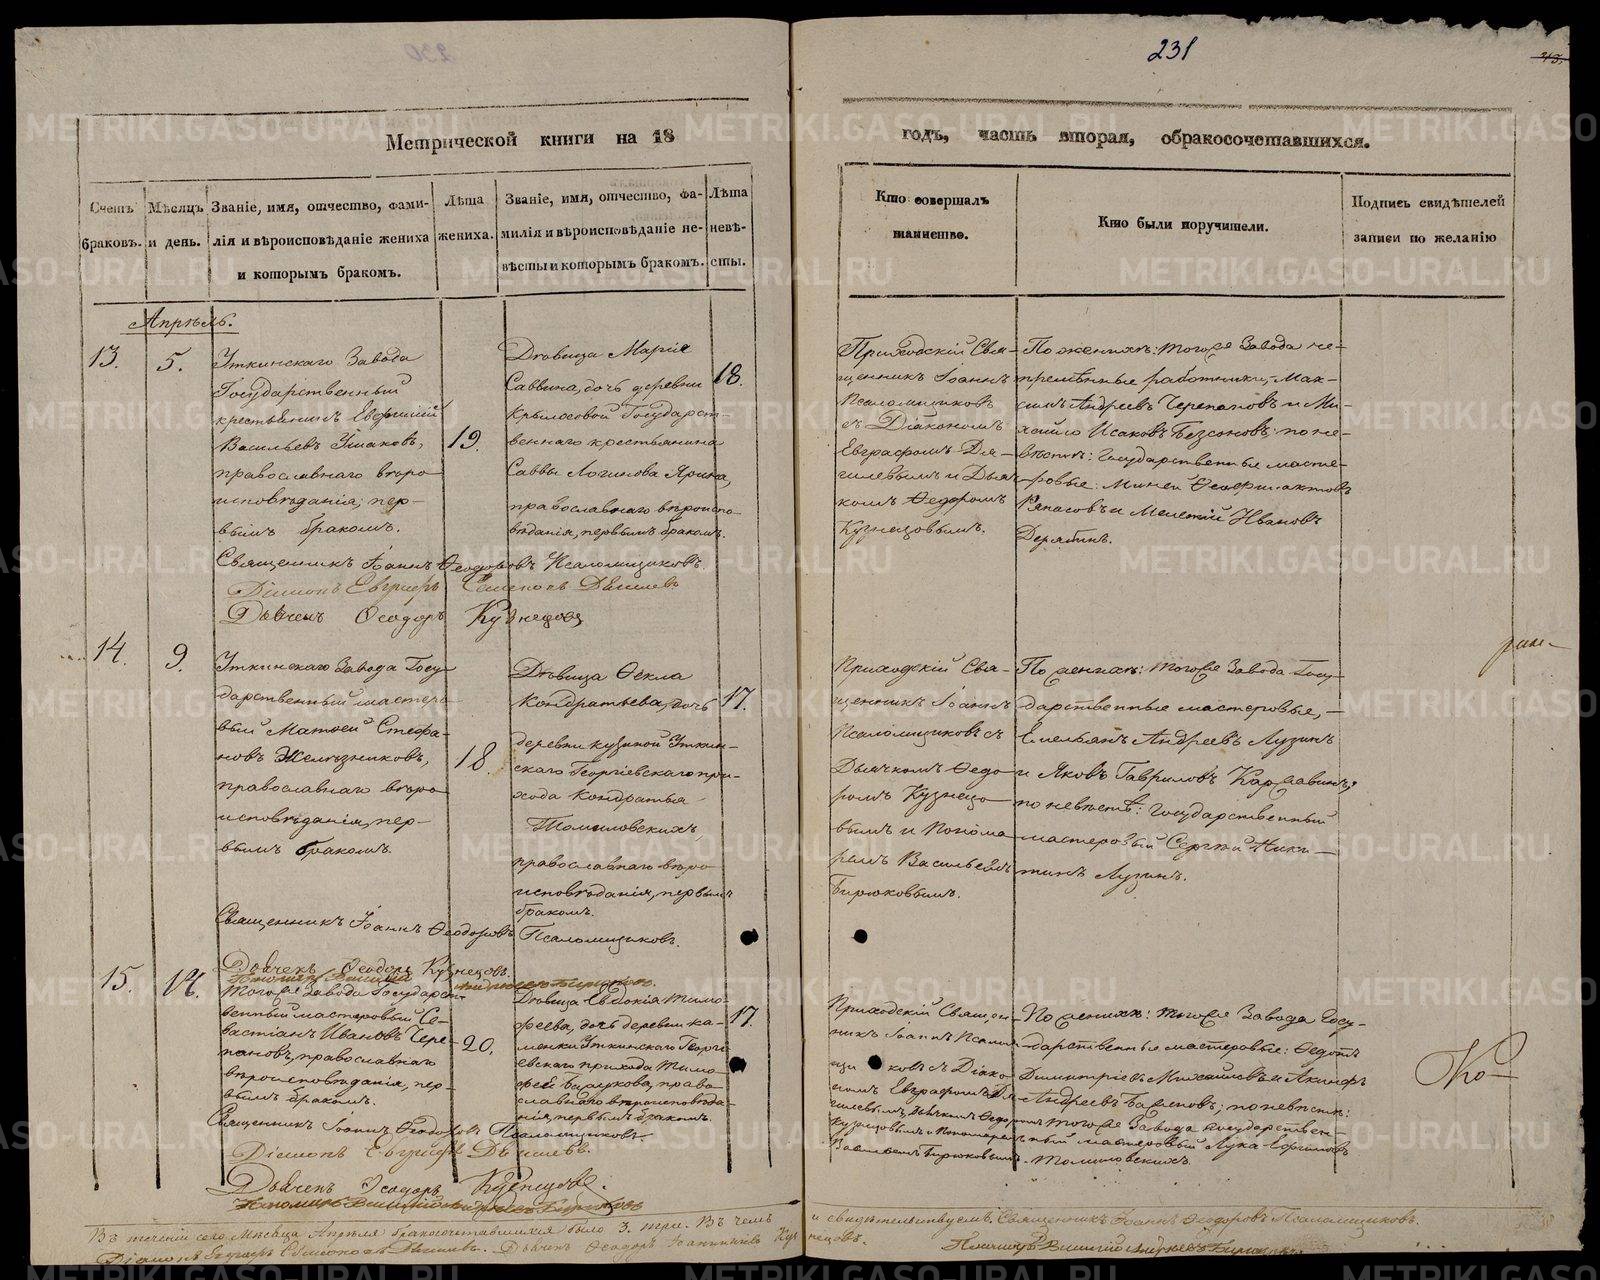 231
Метрической книги на 18
годъ, часть вторая, обракосочетавшихся.
Счетъ браковъ.
Мѣсяцъ и день.
Званіе, имя, отчество, фами-
лія и вѣроисповѣданіе жениха
и которымъ бракомъ.
Лѣта жениха.
Званіе, имя, отчество, фа-
милія и вѣроисповѣданіе не-
вѣсты и которымъ бракомъ.
Лѣта невѣ-
сты.
Кто совершалъ
таинство.
Кто были поручители.
Подпись свидѣтелей
записи по желанію
Апрѣль.
13.
5.
Уткинскаго Завода
Государственный
крестьянинъ Евфимій
Васильевъ Ушаковъ,
православнаго вѣро
исповѣданія, пер-
вымъ бракомъ.
19.
Дѣвица Марія
Саввина, дочь деревни
Крылосовой Государст-
веннаго крестьянина
Саввы Логинова Ярина,
православнаго вѣроиспо-
вѣданія, первымъ бракомъ.
18.
Приходскій Свя-
щенникъ Іоаннъ
Псаломщиковъ
съ Діакономъ
Евграфомъ Дя-
гилевымъ и Дьяч
комъ Ѳедоромъ
Кузнецовымъ.
По женихѣ: тогоже Завода не-
премѣнные работники, Мак-
симъ Андреевъ Черепановъ и Ми-
хайло Исаковъ Безсоновъ; по не-
вѣстѣ: Государственные масте-
ровые: Миней Ѳеофилактовъ
и Мелетій Ивановъ
Дерябинъ.
Священникъ Іоаннъ Ѳеодоровъ Псаломщиковъ.
Діаконъ Евграфъ
Дьячекъ Ѳеодоръ Кузнецовъ
14.
9.
Уткинскаго Завода Госу-
дарственный мастеро
вый Матѳей Стефа-
новъ Желѣзниковъ,
православнаго вѣро
исповѣданія, пер-
вымъ бракомъ.
18
Дѣвица Ѳекла
Кондратьева, дочь
деревни Кузиной Уткин-
скаго Георгіевскаго при-
хода Кондратья
Томиловскихъ,
православнаго вѣро
исповѣданія, первымъ
бракомъ.
17.
Приходскій Свя-
щенникъ Іоаннъ
Псаломщиковъ съ
Дьячкомъ Ѳедо
ромъ Кузнецо
вымъ и Понома
ремъ Васильемъ
Бирюковымъ.
По женихѣ: тогоже Завода Госу-
дарственные мастеровые,
Емельянъ Андреевъ Лузинъ
и Яковъ Гавриловъ Каржавинъ,
по невѣстѣ: Государственный
мастеровый Сергій Ники-
тинъ Лузинъ.
Священникъ Іоаннъ Ѳеодоровъ Псаломщиковъ.
Дьячекъ Ѳеодоръ Кузнецовъ.
15.
Тогоже Завода Государст-
венный мастеровый Се-
вастіанъ Ивановъ Чере-
пановъ, православнаго
вѣроисповѣданія, пер-
вымъ бракомъ.
20.
Дѣвица Евдокія Тимо-
феева, дочь деревни Ка-
менки Уткинскаго Георгі
евскаго прихода Тимо-
фея Бирюкова, право-
славнаго вѣроисповѣда-
нія, первымъ бракомъ.
17.
Приходскій Священ-
никъ Іоаннъ Псалом-
щиковъ съ Діако-
номъ Евграфомъ Дя-
гилевымъ, Дьячкомъ Ѳедоромъ
Кузнецовымъ и Пономаремъ
Васильемъ Бирюковымъ.
По женихѣ: тогоже Завода Госу-
дарственные мастеровые: Ѳедотъ
Димитріевъ и Акинфъ
Андреевъ; по невѣстѣ:
тогоже Завода Государствен-
ный мастеровый Лука Ефимовъ
Томиловскихъ.
Ко-
Священникъ Іоаннъ Ѳеодоровъ Псаломщиковъ
Діаконъ Евграфъ
Дьячекъ Ѳеодоръ Кузнецовъ.
Въ теченіи сего Мѣсяца Апрѣля бракосочетавшихся было 3. три. Въ чемъ и свидѣтельствуемъ. Священникъ Іоаннъ Ѳеодоровъ Псаломщиковъ.
Діаконъ Евграфъ Дьячекъ Ѳеодоръ Кузнецовъ.
METRIKI.GASO-URAL.RU